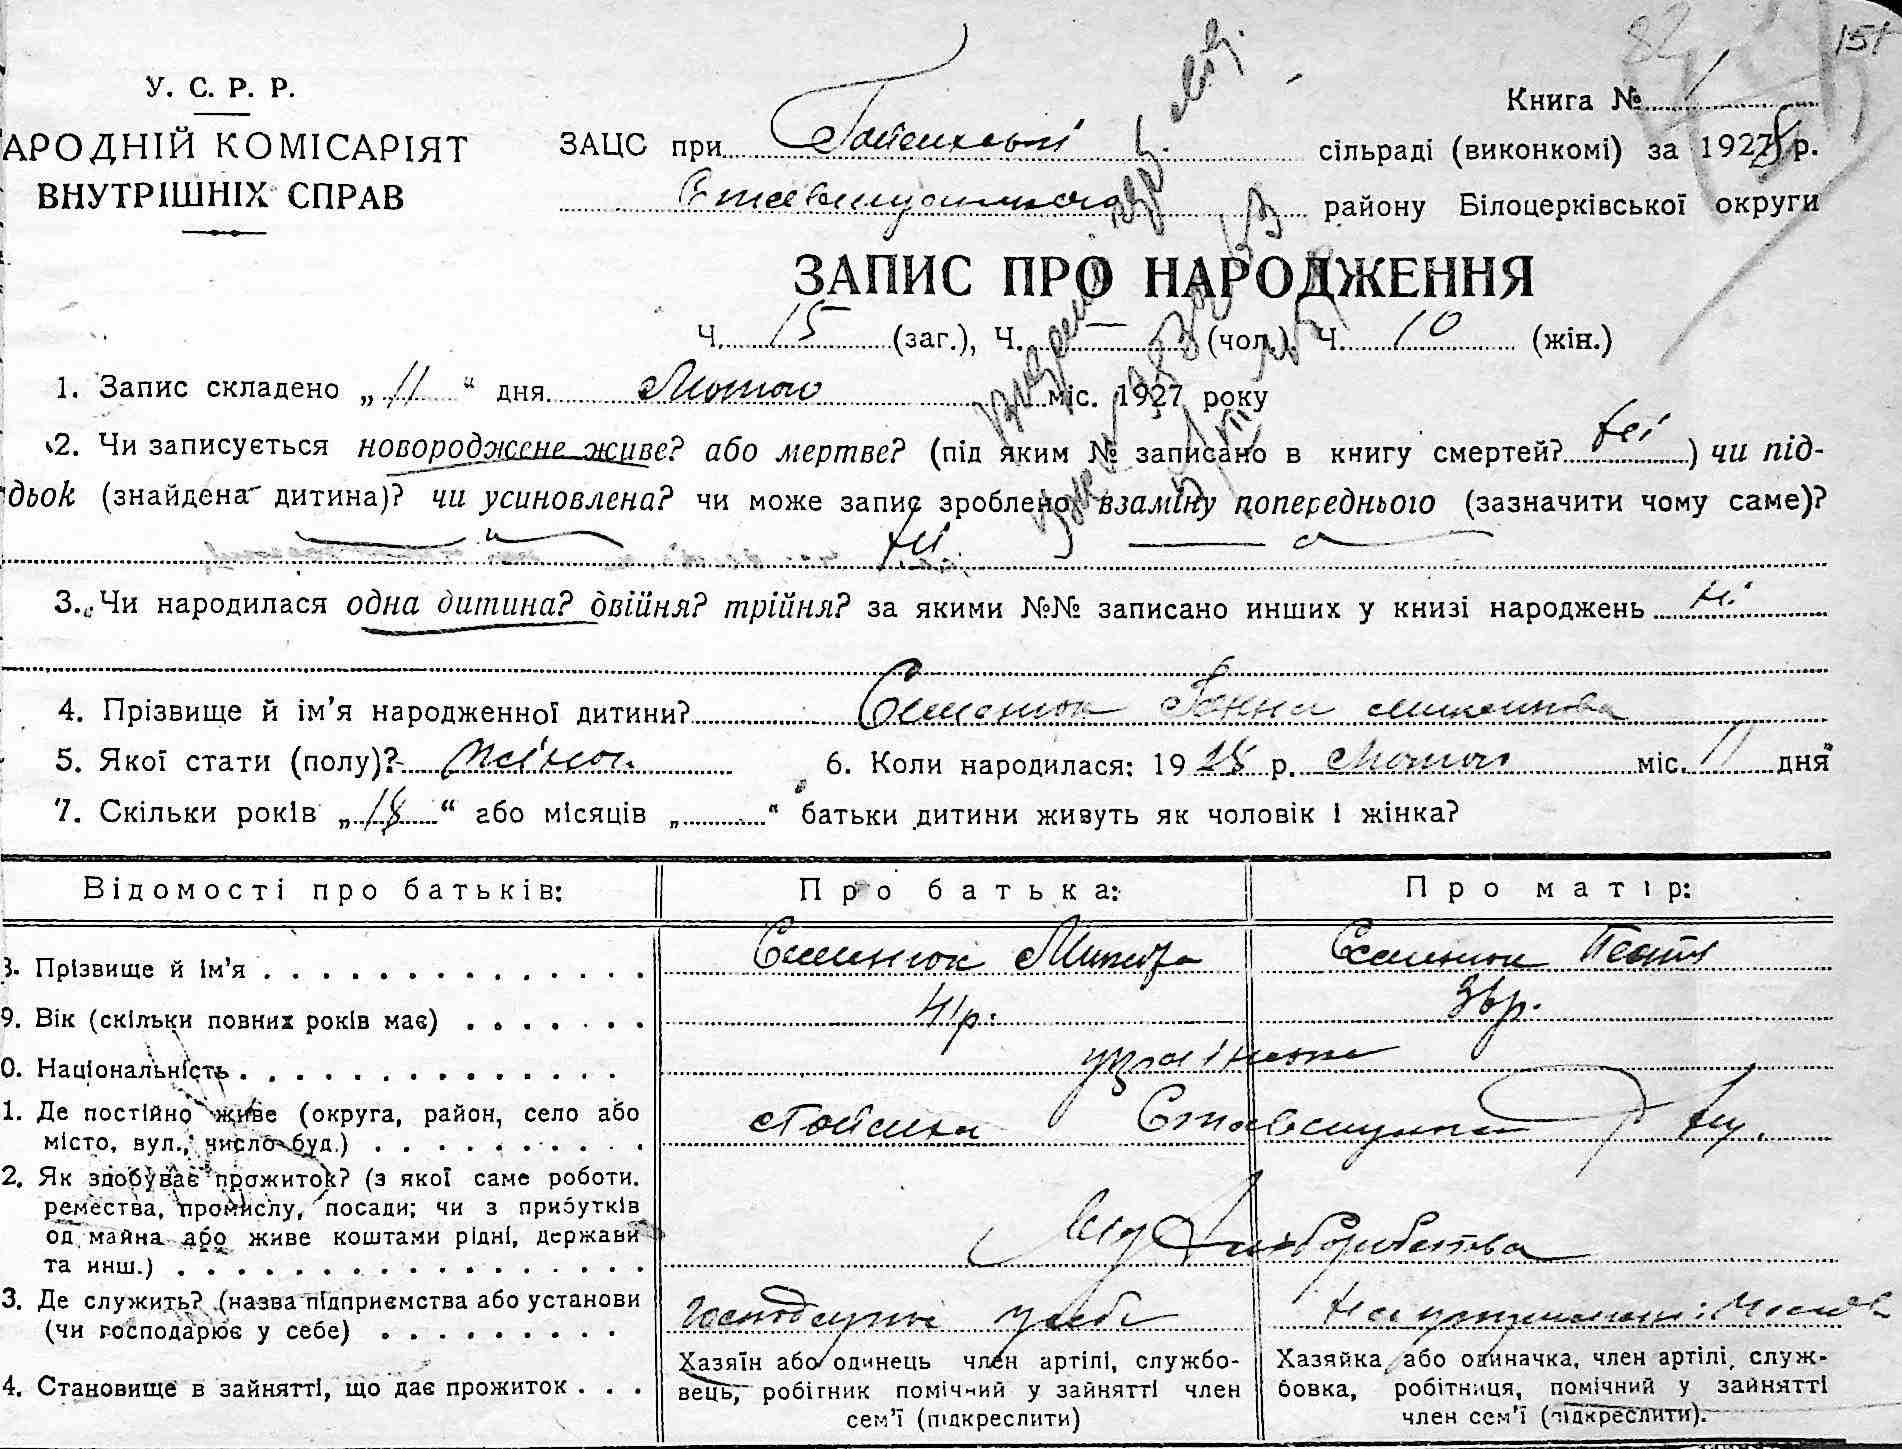 151
84
У. С. Р. Р.
АРОДНІЙ КОМІСАРІЯТ
ВНУТРІШНІХ СПРАВ
Книга №
ЗАЦС при сільраді (виконкомі) за 1928 р.
району Білоцерківської округи
ЗАПИС ПРО НАРОДЖЕННЯ
Ч. 15 (заг.), Ч. — (чол.) Ч. 10 (жін.)
1. Запис складено „ 11 “ дня Лютого міс. 1927 року
2. Чи записується новороджене живе? або мертве? (під яким № записано в книгу смертей? ні ) чи під-
дьок (знайдена дитина)? чи усиновлена? чи може запис зроблено взаміну попереднього (зазначити чому саме)?
ні
3. Чи народилася одна дитина? двійня? трійня? за якими №№ записано инших у книзі народжень ні
4. Прізвище й ім’я народженної дитини? Семенюк Ганна
5. Якої стати (полу)? жіноч. 6. Коли народилася: 19 28 р. Лютого міс. 11 дня
7. Скільки років „ 18 “ або місяців „ “ батьки дитини живуть як чоловік і жінка?
Відомості про батьків: Про батька: Про матір:
8. Прізвище й ім’я Семенюк Микита Семенюк
9. Вік (скільки повних років має) 41 р. 36 р.
0. Національність українська
1. Де постійно живе (округа, район, село або
місто, вул., число буд.)
2. Як здобуває прожиток? (з якої саме роботи.
ремества, промислу, посади; чи з прибутків
од майна або живе коштами рідні, держави
та инш.) хліборобства
3. Де служить? (назва підприємства або установи
(чи господарює у себе) Господарює у себе
4. Становище в зайнятті, що дає прожиток
Хазяїн або одинець член артілі, службо-
вець, робітник помічний у зайнятті член
сем’ї (підкреслити)
Хазяйка або одиначка, член артілі, служ-
бовка, робітниця, помічний у зайнятті
член сем’ї (підкреслити).